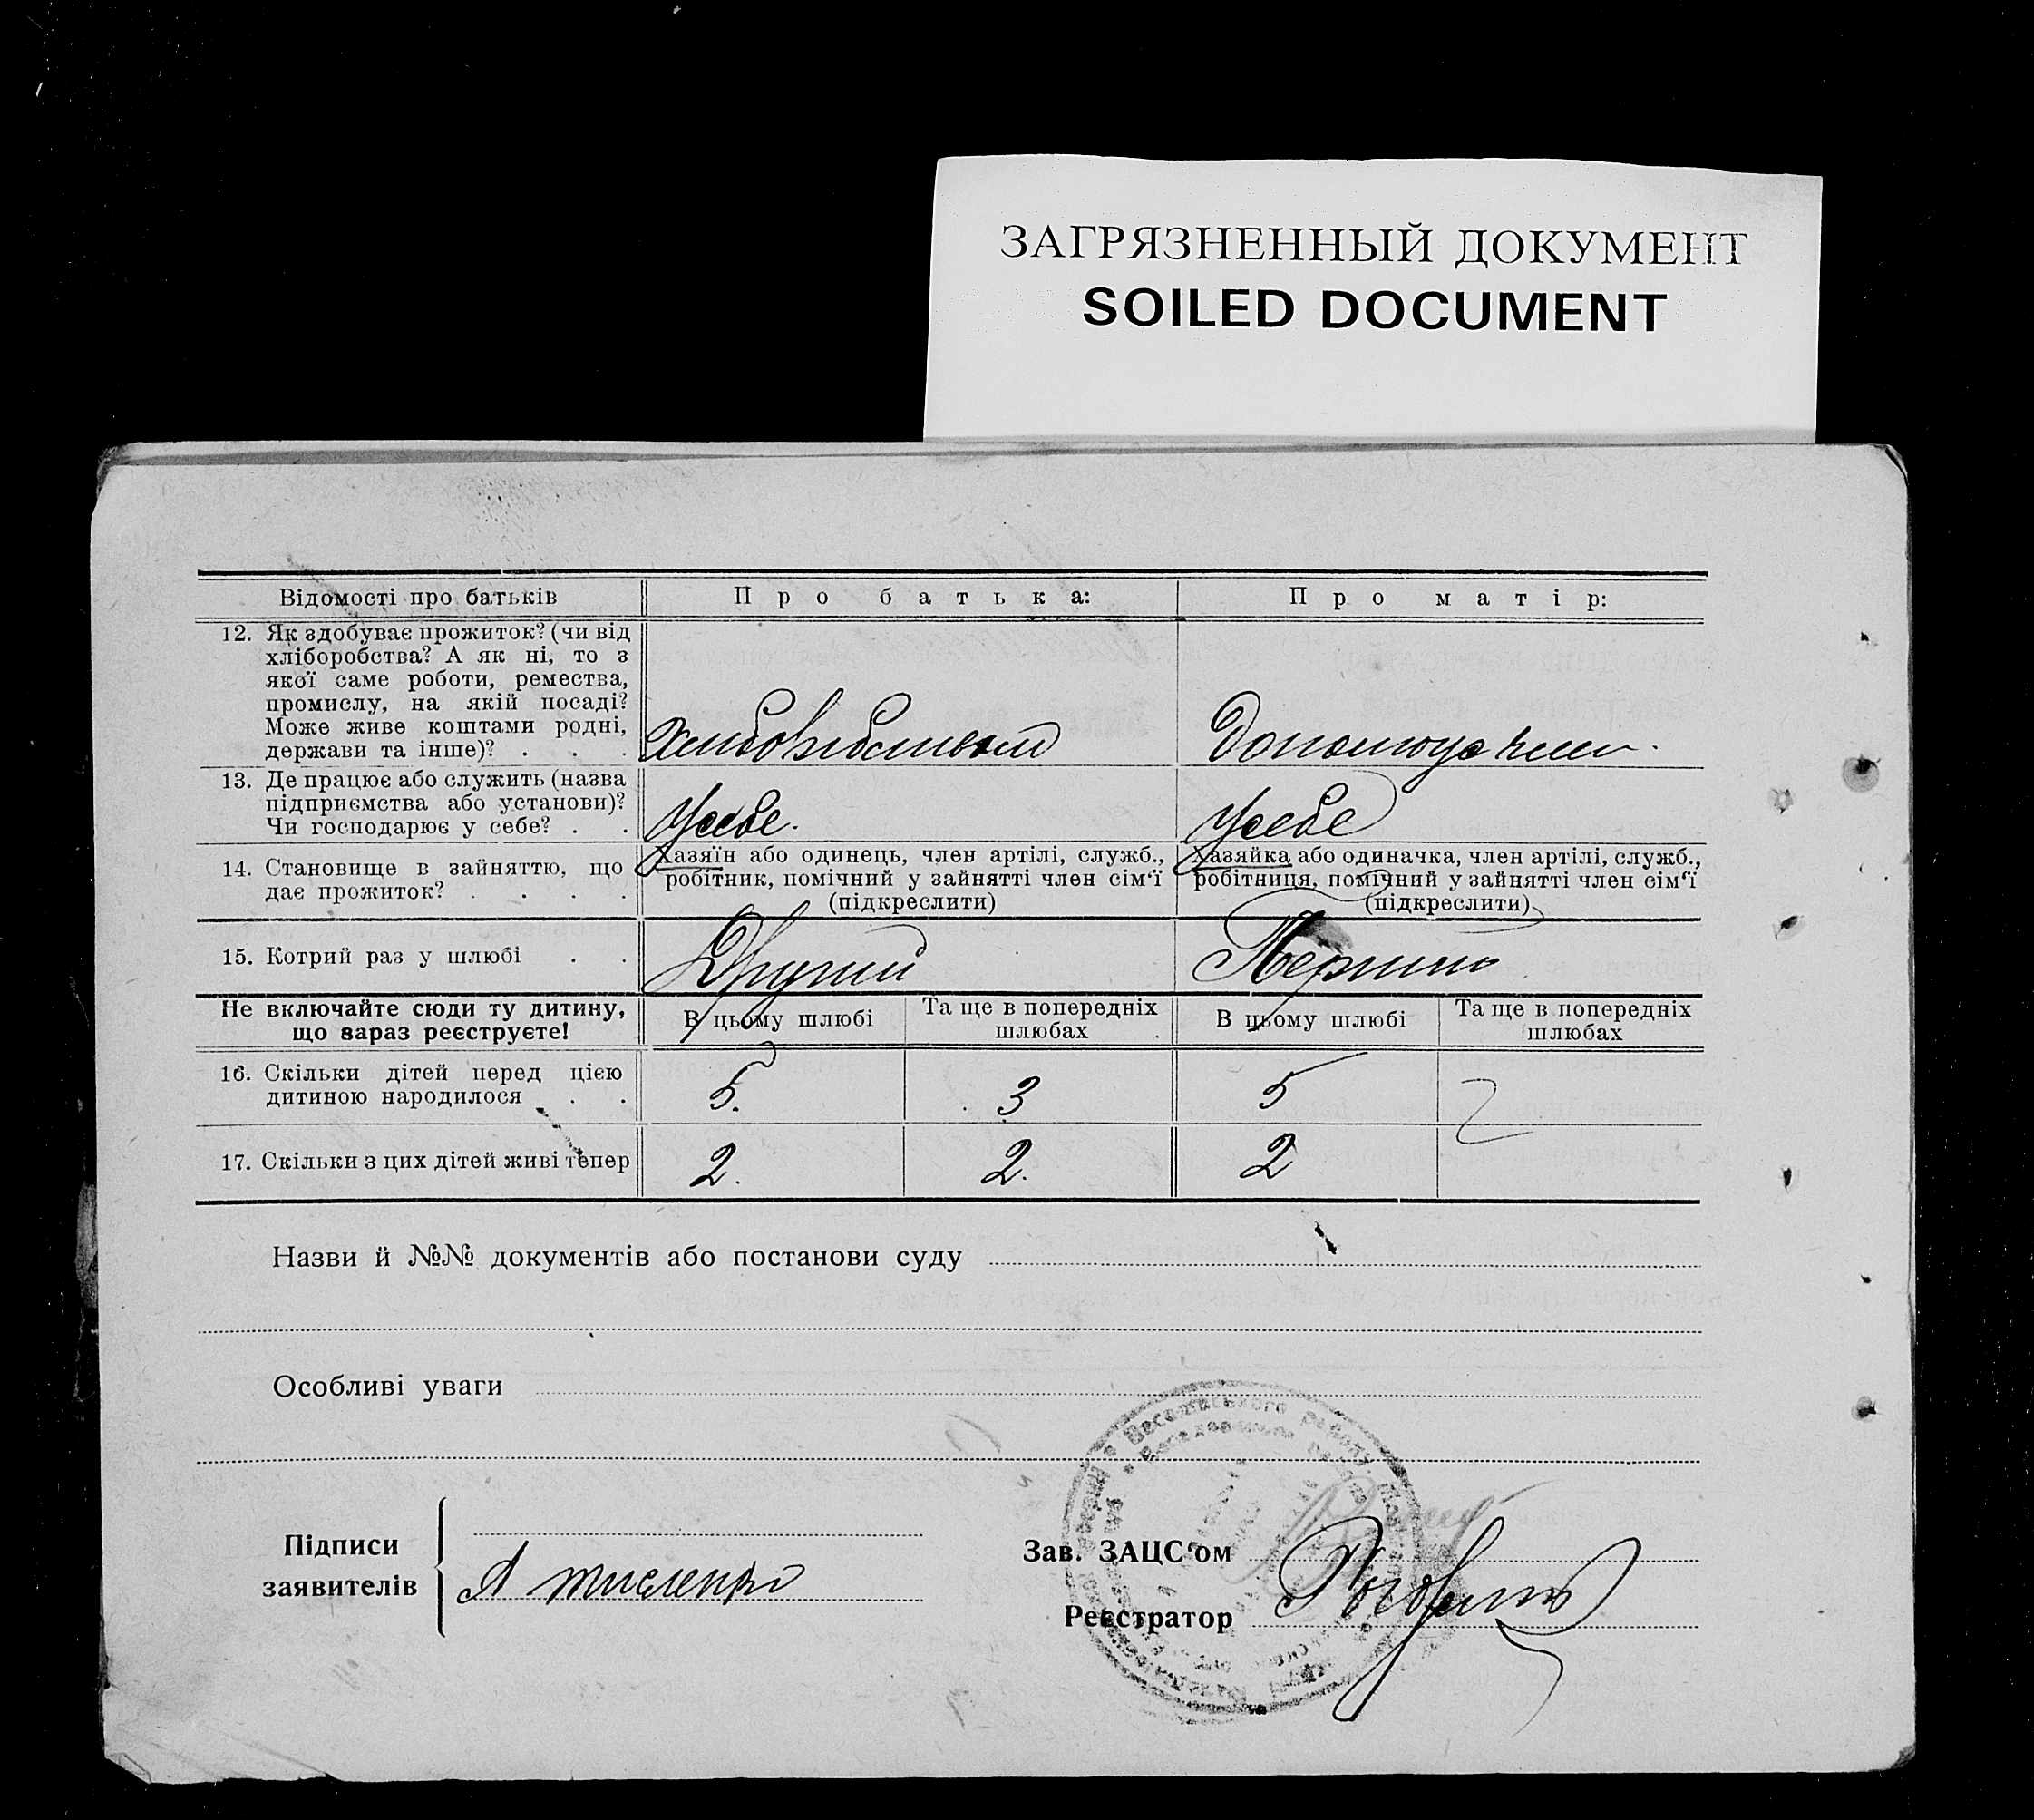 ЗАГРЯЗНЕННЫЙ ДОКУМЕНТ
SOILED DOCUMENT
Відомості про батьків
Про батька:
Про матір:
12. Як здобуває прожиток? (чи від
хліборобства? А як ні, то з
якої саме роботи, ремества,
промислу, на якій посаді?
Може живе коштами родні,
держави та інше)? . . .
13. Де працює або служить (назва
підприємства або установи)?
Чи господарює у себе? . .
У себе.
У себе
14. Становище в зайняттю, що
дає прожиток? . . . .
Хазяїн або одинець, член артілі, служб.,
робітник, помічний у зайнятті член сім'ї
(підкреслити)
Хазяйка або одиначка, член артілі, служб.,
робітниця, помічний у зайнятті член сім'ї
(підкреслити)
15. Котрий раз у шлюбі . .
Другий
Не включайте сюди ту дитину,
що зараз реєструєте!
В цьому шлюбі
Та ще в попередніх
шлюбах
В цьому шлюбі
Та ще в попередніх
шлюбах
16. Скільки дітей перед цією
дитиною народилося . .
5.
3
5
17. Скільки з цих дітей живі тепер
2.
2.
2
Назви й №№ документів або постанови суду
Особливі уваги
Підписи
заявителів
Зав. ЗАЦС'ом
Реєстратор